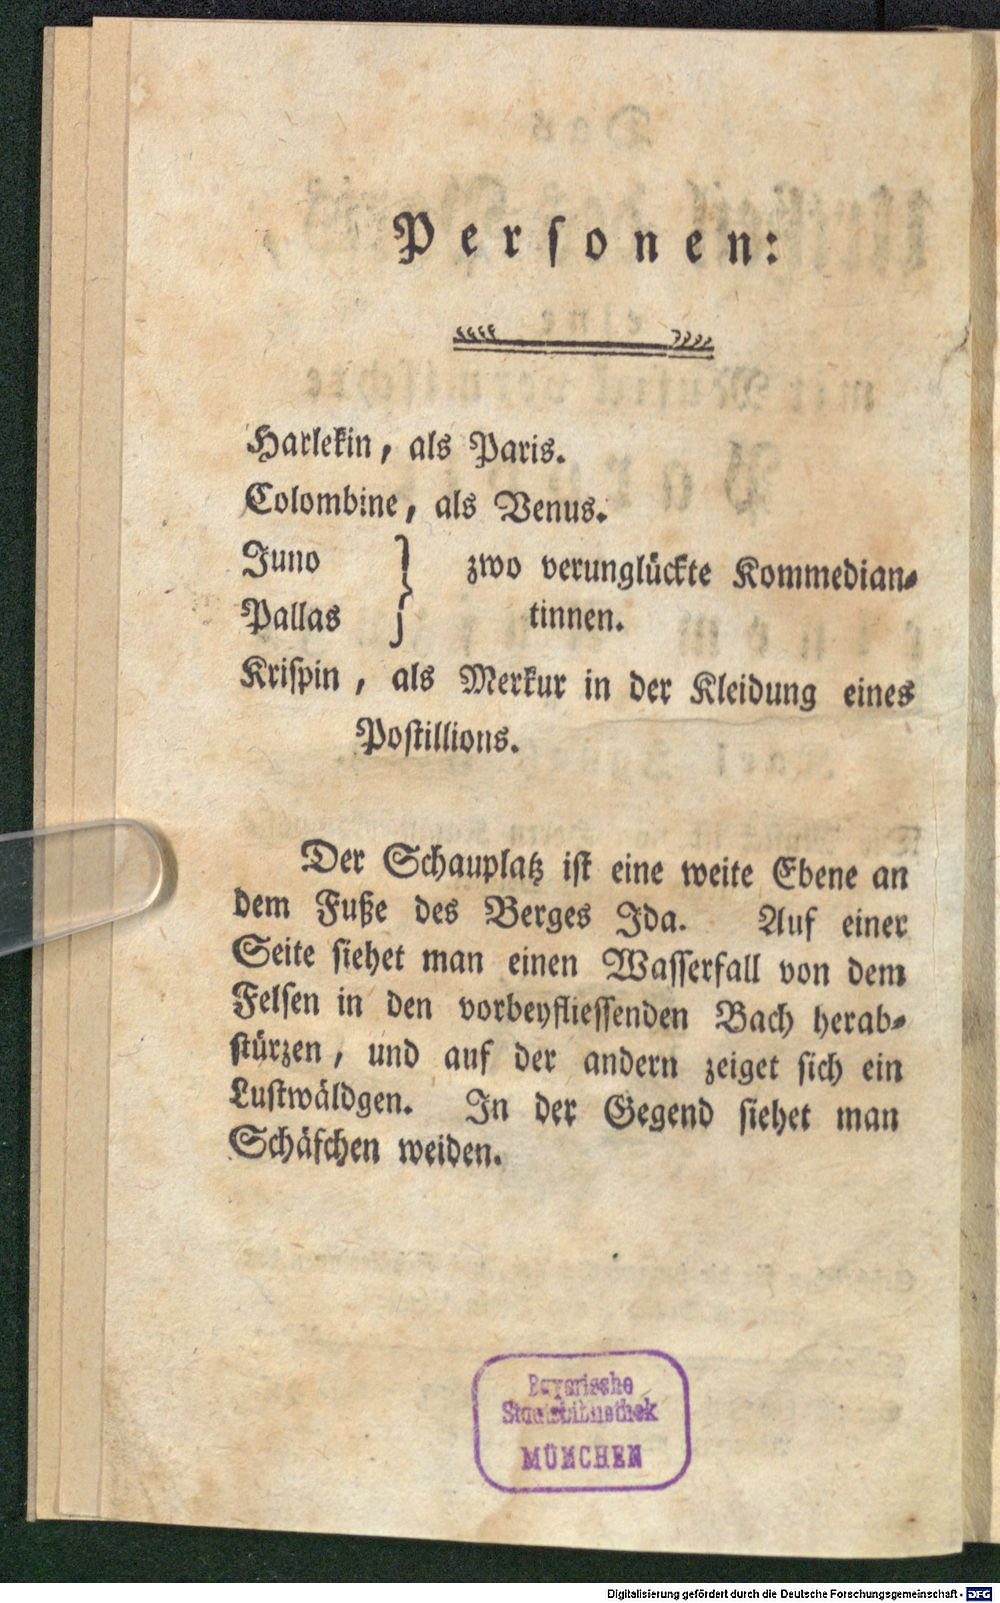 Personen:
Harlekin, als Paris.
Colombine, als Venus.
Juno } zwo verunglückte Kommedian-
Pallas } tinnen.
Kriſpin, als Merkur in der Kleidung eines
Poſtillions.
Der Schauplatz iſt eine weite Ebene an
dem Fuße des Berges Ida. Auf einer
Seite ſiehet man einen Waſſerfall von dem
Felſen in den vorbeyflieſſenden Bach herab-
ſtürzen, und auf der andern zeiget ſich ein
Luſtwäldgen. In der Gegend ſiehet man
Schäfchen weiden.
Bayerische
Staatsbibliothek
MÜNCHEN
Digitalisierung gefördert durch die Deutsche Forschungsgemeinschaft - DFG